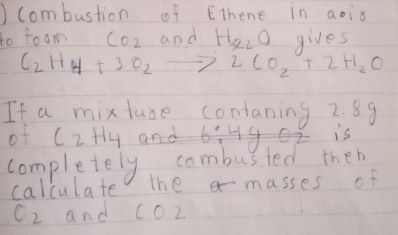 ) Combustion of Ethene in aois
to foam CO2 and H2O gives
C2H4 + 3O2 → 2CO2 + 2H2O
If a mixtuse contaning 2.8g
of C2H4 and 6.4g O2 is
completely combusted then
calculate the masses of
O2 and CO2